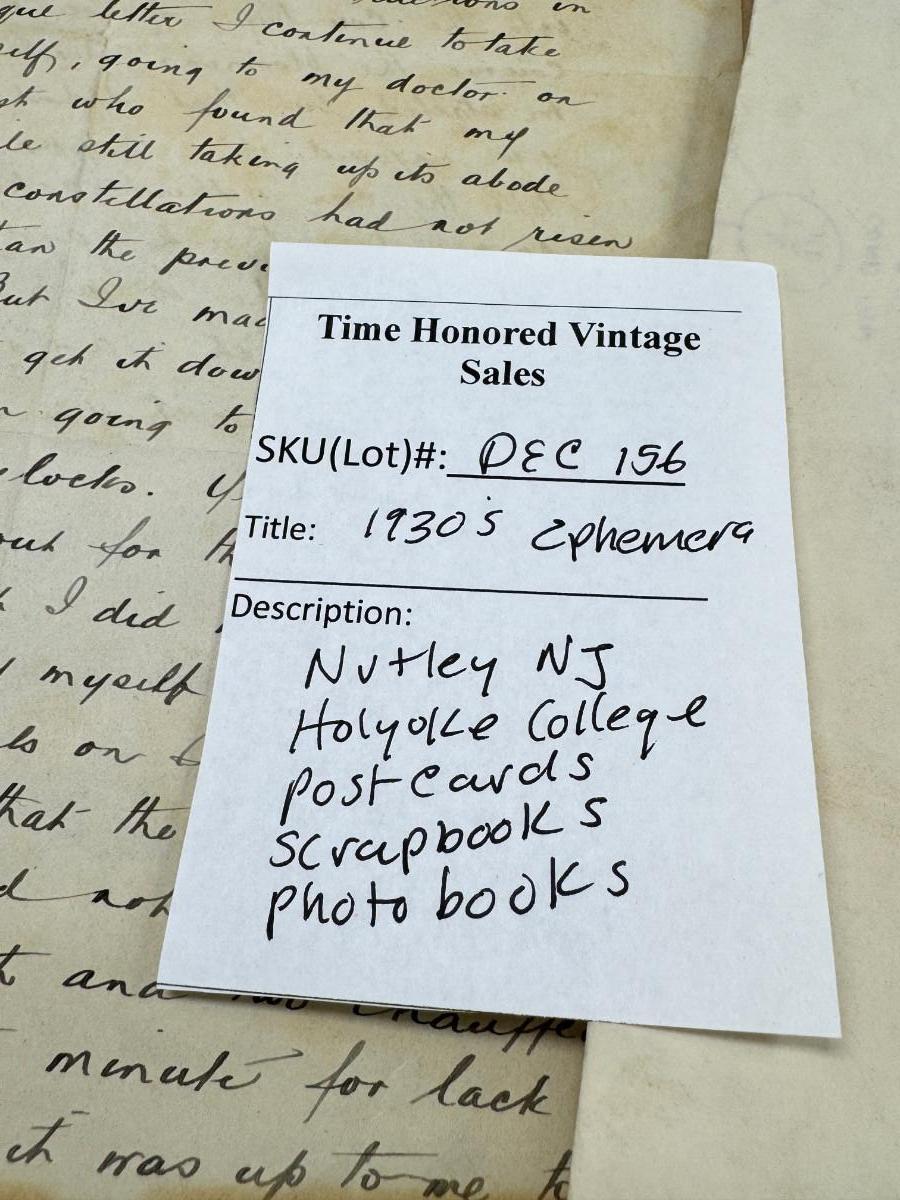 letter I continue to take
going to my doctor on
who found that my
still taking up its abode
constellations had not risen
the
But I've
get it
going to
locks.
for
I did
myself
on
that the
and
minute for lack
it was up to me
Time Honored Vintage
Sales
SKU(Lot)#: DEC 156
Title: 1930's Ephemera
Description:
Nutley NJ
Holyoke College
postcards
scrapbooks
photo books